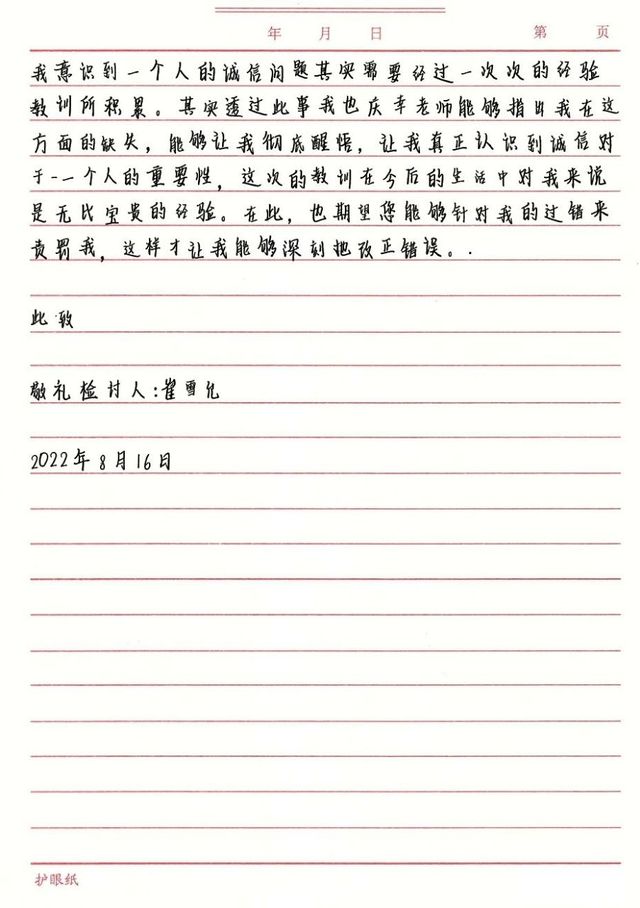 年 月 日 第 页
我意识到一个人的诚信问题其实需要经过一次次的经验
教训所积累。其实透过此事我也庆幸老师能够指出我在这
方面的缺失，能够让我彻底醒悟，让我真正认识到诚信对
于一个人的重要性，这次的教训在今后的生活中对我来说
是无比宝贵的经验。在此，也期望您能够针对我的过错来
责罚我，这样才让我能够深刻地改正错误。.
此致
敬礼检讨人:崔雪允
2022年8月16日
护眼纸